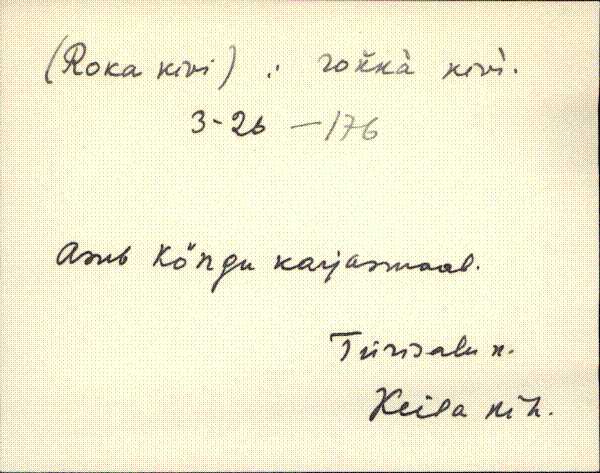 (Roka kivi) : rokkà kivì.
3-26 — 176
Asub Köngu karjasmaal.
Türisalu n.
Keila kih.